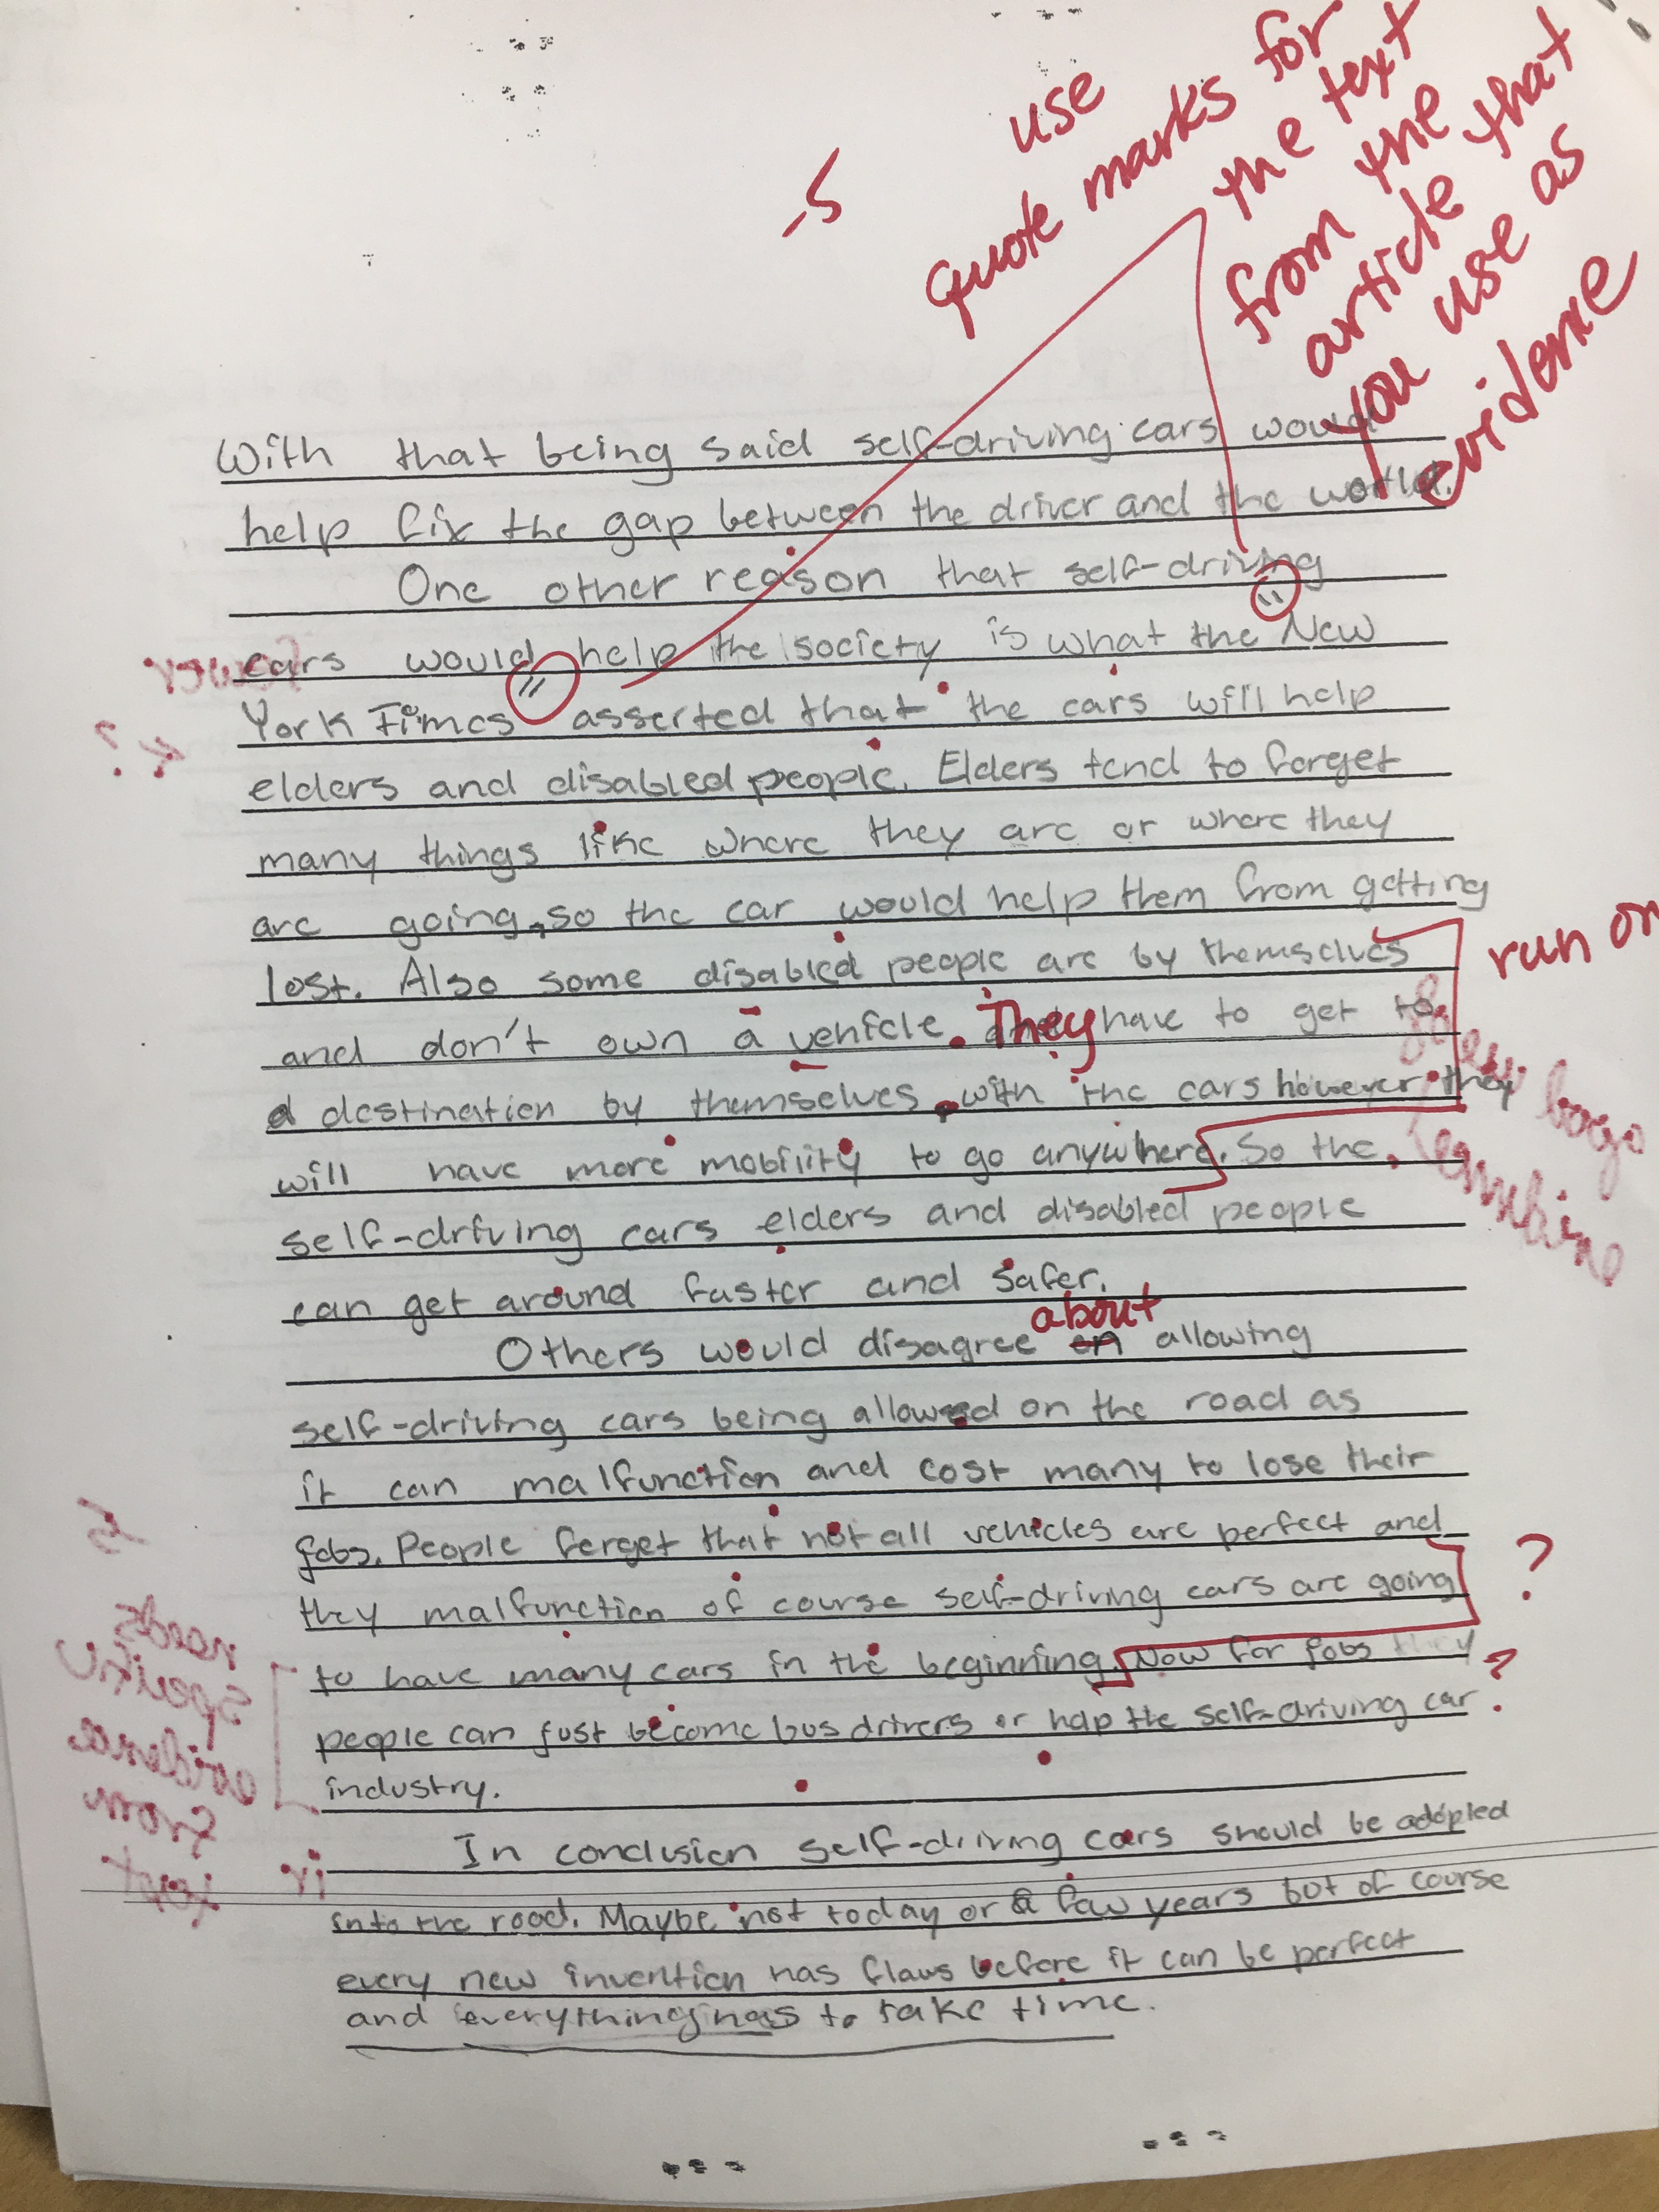 -5
use
quote marks for
the text
from the
article that
you use as
evidence
With that being said self-driving cars would
help fix the gap between the driver and the world.
One other reason that self-driving
cars would help the society is what the New
York Times " asserted that the cars will help "
elders and disabled people. Elders tend to forget
many things like where they are or where they
are going, so the car would help them from getting
lost. Also some disabled people are by themselves
run on
and don't own a vehicle. They have to get to
a destination by themselves, with the cars however they
will have more mobility to go anywhere. So the
self-driving cars elders and disabled people
can get around faster and safer.
about
Others would disagree on allowing
self-driving cars being allowed on the road as
it can malfunction and cost many to lose their
jobs. People forget that not all vehicles are perfect and
?
they malfunction of course self-driving cars are going
to have many cars in the beginning. Now for jobs they
?
people can just become bus drivers or help the self-driving car
industry.
In conclusion self-driving cars should be adopled
into the road. Maybe not today or a few years but of course
every new invention has flaws before it can be perfect
and everything has to take time.